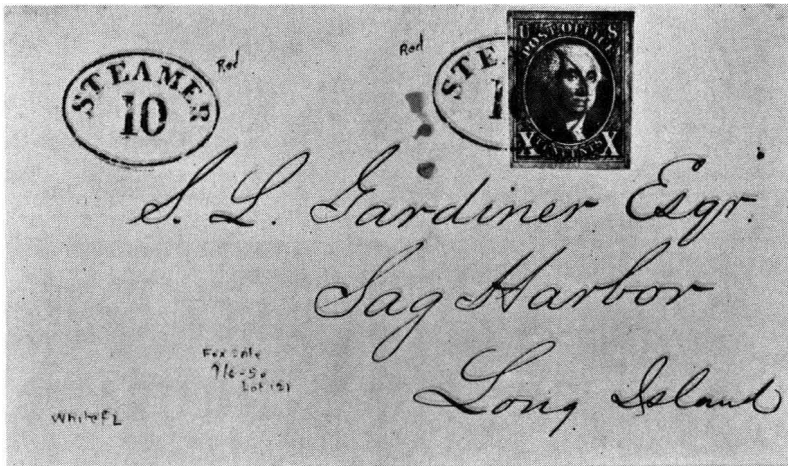 STEAMER
10
Red
Red
STE
1
U S
POST OFFICE
X X
S. L. Gardiner Esqr.
Sag Harbor
Long Island
Fox Sale
Lot 121
White FL